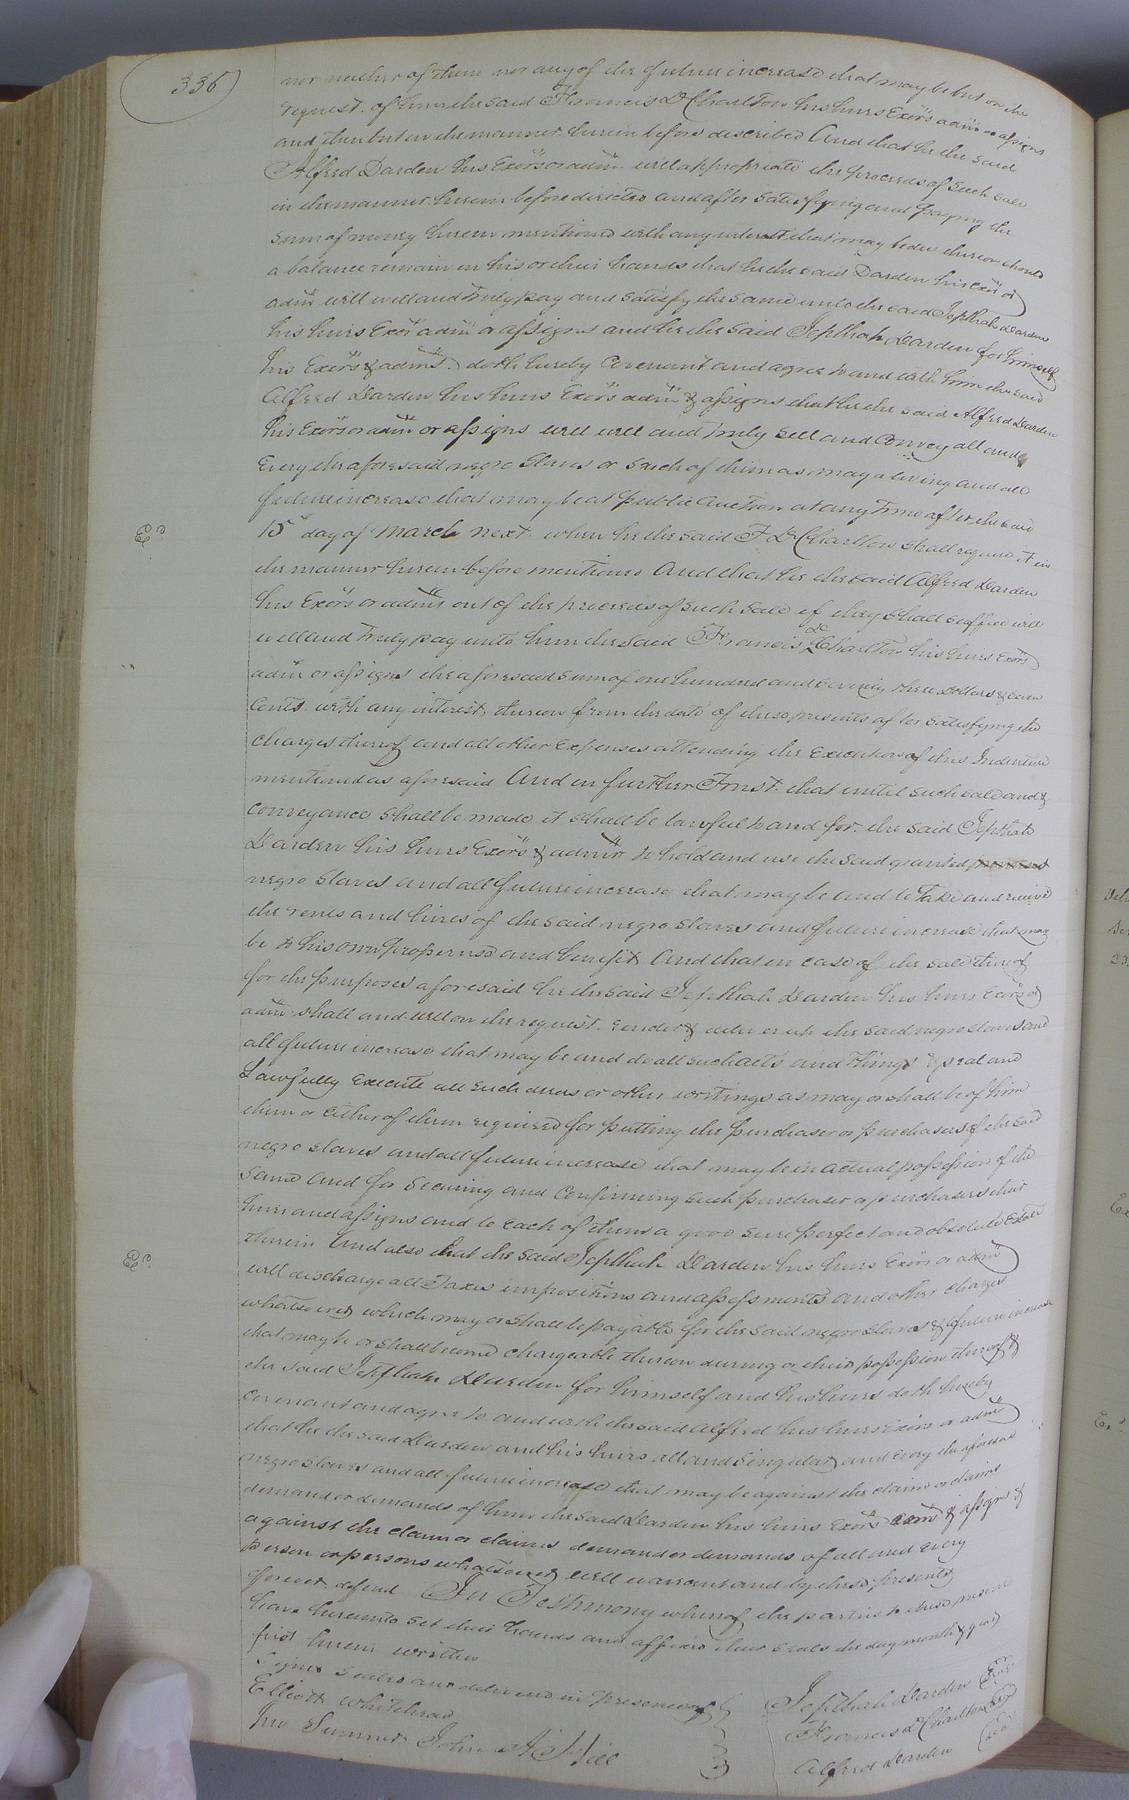 336
nor neither of them nor any of the future increase that may be but on the
request of him the said Francis D Charlton his heirs Exors admr or assigns
and then but in the manner herein before described And that he the said
Alfred Darden his Exors or admr will appropriate the proceeds of such sale
in the manner herein before directed and after satisfying and paying the
sum of money herein mentioned with any interest that may be due thereon should
a balance remain in his or their hands that he the said Darden his exors or
admr will well and truly pay and satisfy the same unto the said Jepthah Darden
his heirs Exors admr or assigns and he the said Jepthah Darden for himself
his Exors & admrs doth hereby Covenant and agree to and with him the said
Alfred Darden his heirs Exors admr & assigns that he the said Alfred Darden
his Exors or admr or assigns will well and truly Sell and Convey all and
Every the aforesaid negro slaves or such of them as may a living and all
future increase that may be at public auction at any time after the said
15th day of March next when he the said F D Charlton shall require it in
the manner herein before mentioned And that he the said Alfred Darden
his Exors or admrs out of the proceeds of such sale if they shall suffice will
well and truly pay unto him the said Francis D Charlton his heirs Exors
admr or assigns the aforesaid sum of one hundred and seventy three dollars & seven
Cents with any interest thereon from the date of these presents after satisfying the
charges thereof and all other expenses attending the execution of this Indenture
mentioned as aforesaid And in further Trust that until such sale and
conveyance shall be made it shall be lawful to and for the said Jepthah
Darden his heirs Exors & admrs to hold and use the said granted
negro slaves and all future increase that may be and to take and receive
the rents and hires of the said negro slaves and future increase that may
be to his own proper use and benefit And that in case of the sale thereof
for the purposes aforesaid he the said Jepthah Darden his heirs Exors or
admr shall and will on the request render & deliver up the said negro slaves and
all future increase that may be and do all such acts and things & seal and
Lawfully Execute all such deeds or other writings as may or shall be of him
them or either of them required for putting the purchaser or purchasers of the said
negro slaves and all future increase that may be in actual possession of the
same and for securing and confirming such purchaser or purchasers their
heirs and assigns and to each of them a good sure perfect and absolute Estate
therein And also that the said Jepthah Darden his heirs Exors or admr
will discharge all Taxes impositions and assessments and other charges
whatsoever which may or shall be payable for the said negro slaves & future increase
that may be or shall become chargeable thereon during or their possession thereof &
the said Jepthah Darden for himself and his heirs doth hereby
Covenant and agree to and with the said Alfred his heirs Exors or admr
that he the said Darden and his heirs all and singular and every the aforesaid
negro slaves and all future increase that may be against the claim or claims
demand or demands of him the said Darden his heirs Exors admr & assigns &
against the claim or claims demand or demands of all and every
person or persons whatsoever will warrant and by these presents
forever defend In Testimony whereof the parties to these presents
have hereunto set their hands and affixed their seals the day month & year
first herein written
Signed Sealed and delivered in presence of
Elliott Whitehead
Jno Sumner John A Hill
Jepthah Darden Seal
Francis D Charlton Seal
Alfred Darden Seal